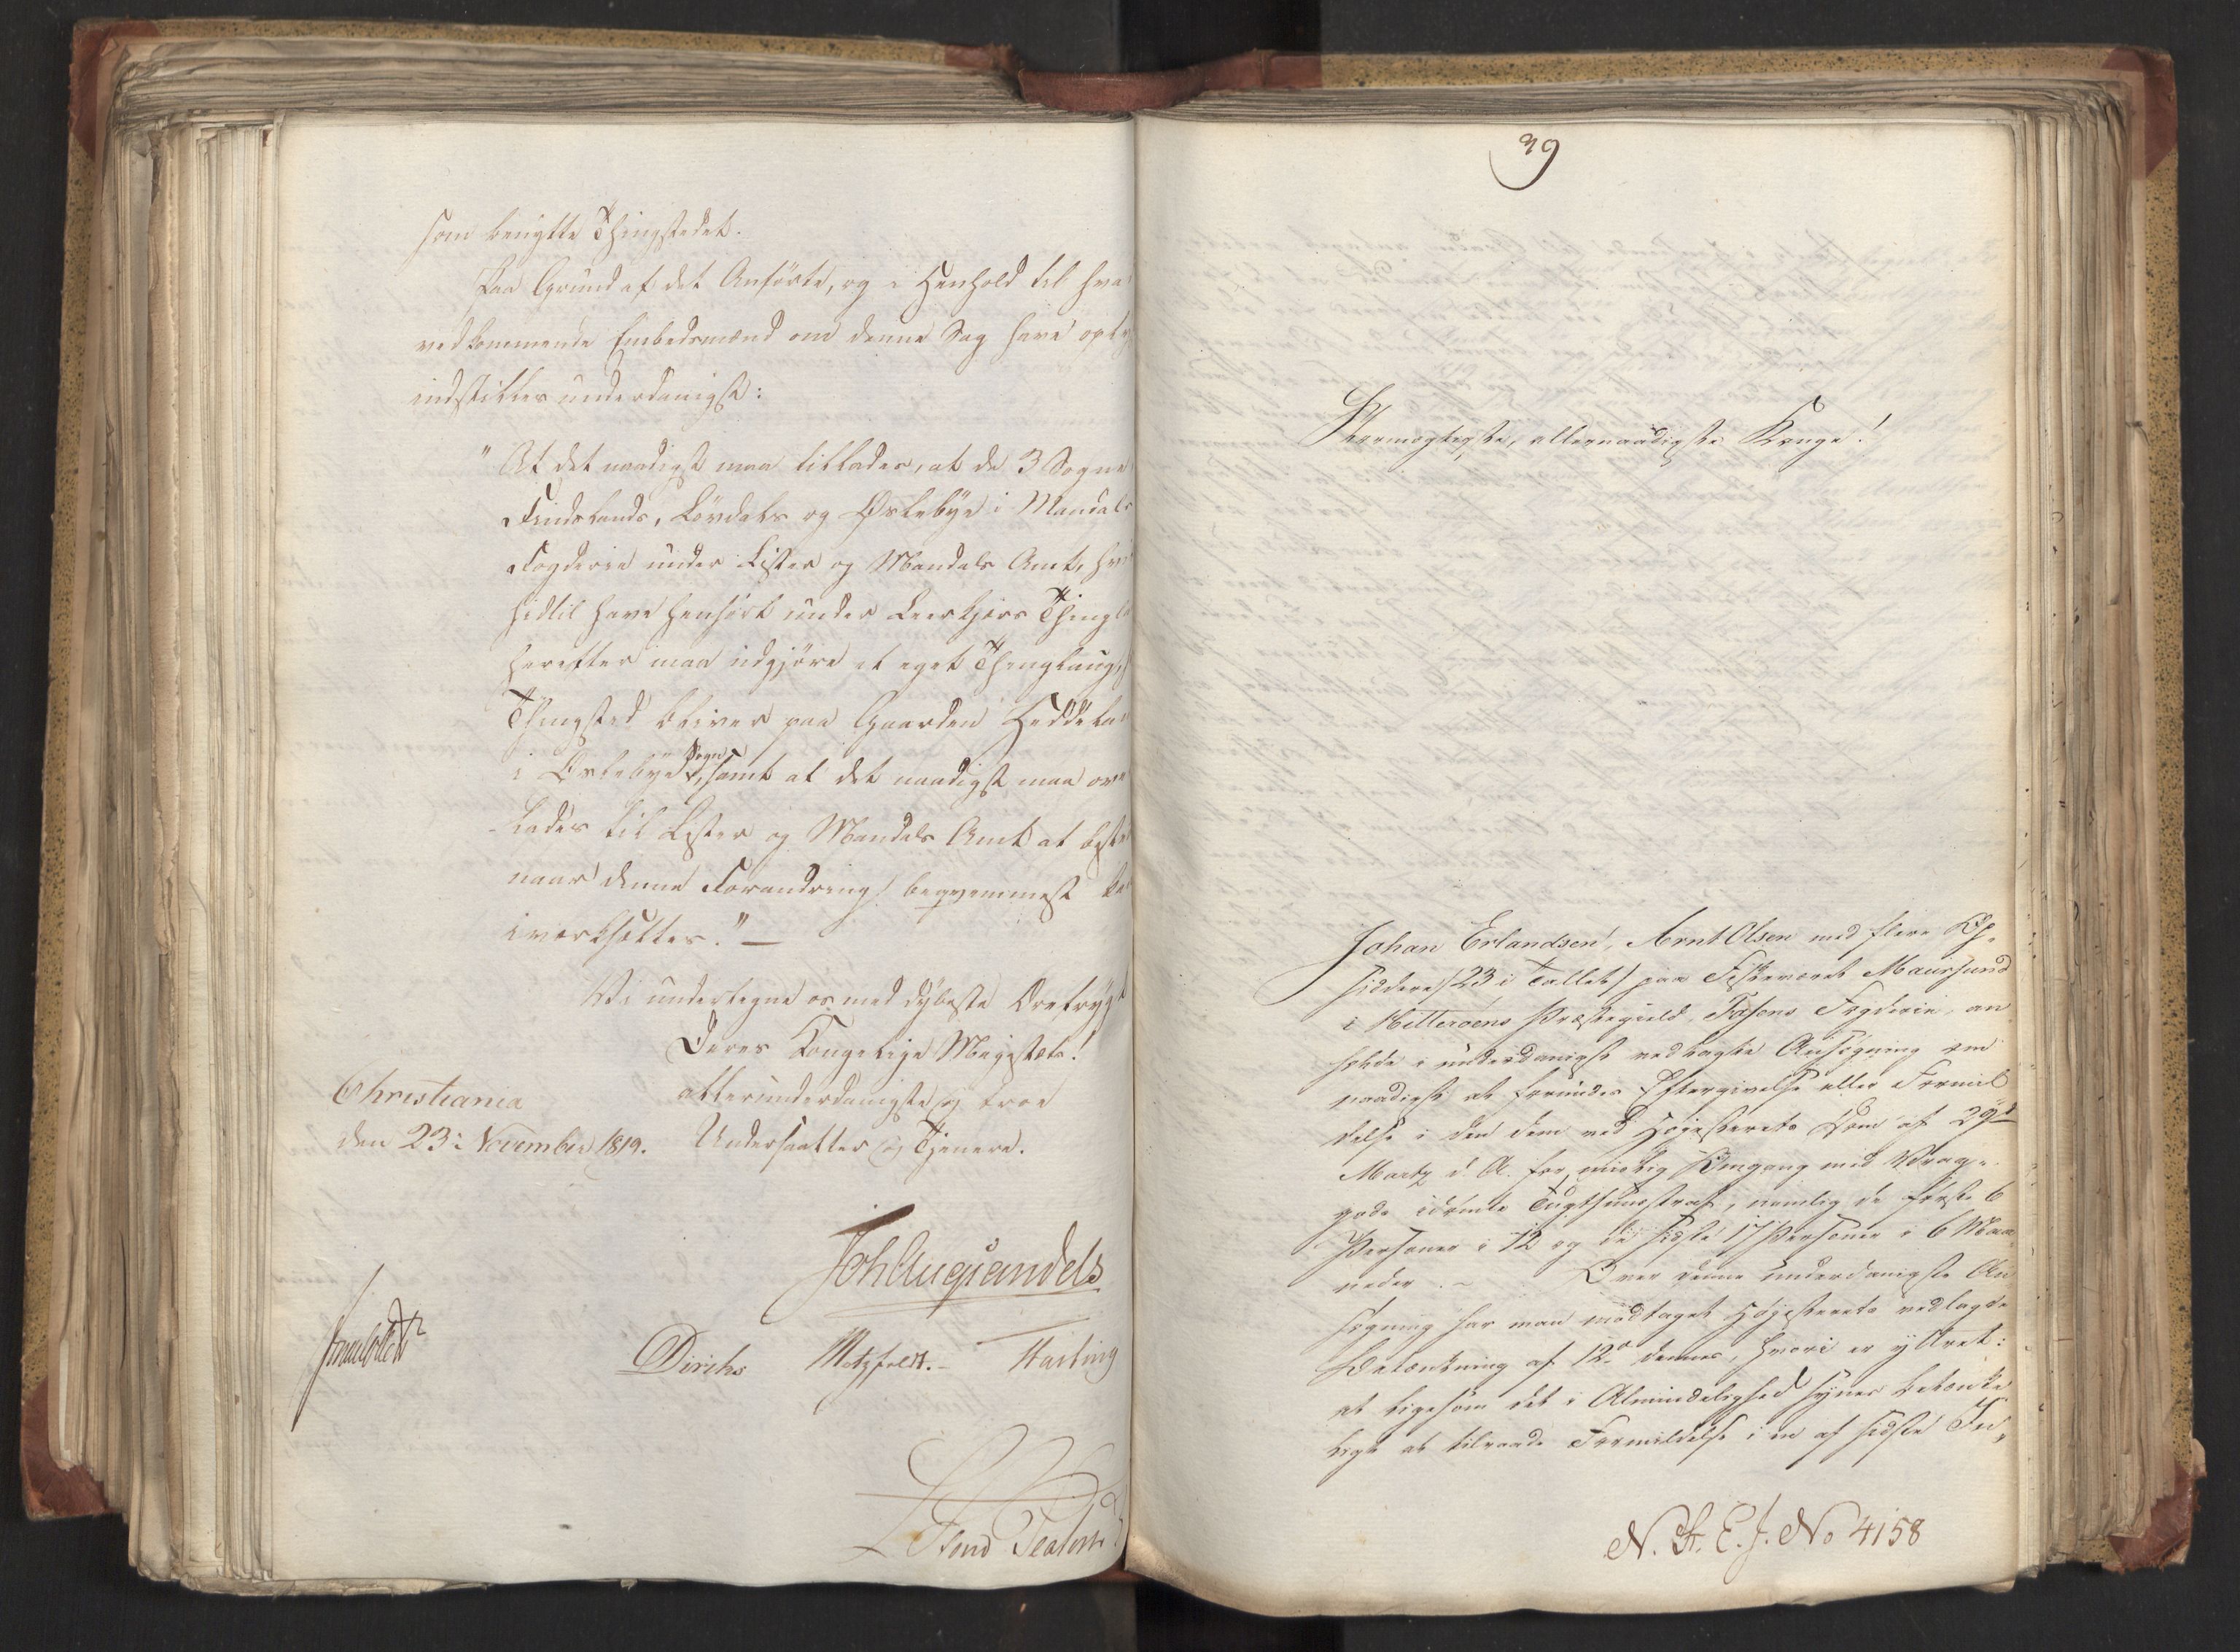 som benytte Thingstedet.
Paa Grund af det Anførte, og i Henhold til hva
vedkommende Embedsmænd om denne Sag have oply
indstilles underdanigst:
"At det naadigst maa tillades, at de 3 Sogne
Findslands, Løvdals og Øslebye i Mandals
Fogderie under Lister og Mandals Amt, hvi
hidtil have henhørt under Leerkjers Thingla
herefter maa udgjøre et eget Thinglaug,
Thingsted bliver paa Gaarden Heddela
i Øslebye Sogn, samt at det naadigst maa over
-lades til Lister og Mandals Amt at beste
naar denne Forandring beqvemmest ka
iværksættes." —
Vi undertegne os med dybeste Ærefrygt
Deres Kongelige Majestæts!
allerunderdanigste og troe
Undersaatter og Tjenere.
Christiania
den 23: November 1819.
JohAugSandels
Collett
Diriks Motzfeldt. Harling
39
Stormægtigste, allernaadigste Konge!
Johan Erlandsen, Arnt Olsen med flere Op-
siddere /23 i Tallet/ paa Fiskeværet Maursund
i Hitterøens Præstegield, Fosens Fogderie, an
holde i underdanigst vedlagte Ansøgning om
naadigst at forundes Eftergivelse eller Formil
delse i den dem ved Høiesterets Dom af 29de
Martz d. A. for Omgang med Vrag-
gods idømte Tugthuusstraf, nemlig de første 6
Personer i 12 og de sidste 17 Personer i 6 Maa-
neder. – Over denne underdanigste An
søgning har man modtaget Høiesterets vedlagde
Betænkning af 12te dennes, hvori er yttret:
at ligesom det i Almindelighed synes betænke
ligt at tilraade Formildelse i en af sidste In-
N. St. E. J. No 4158